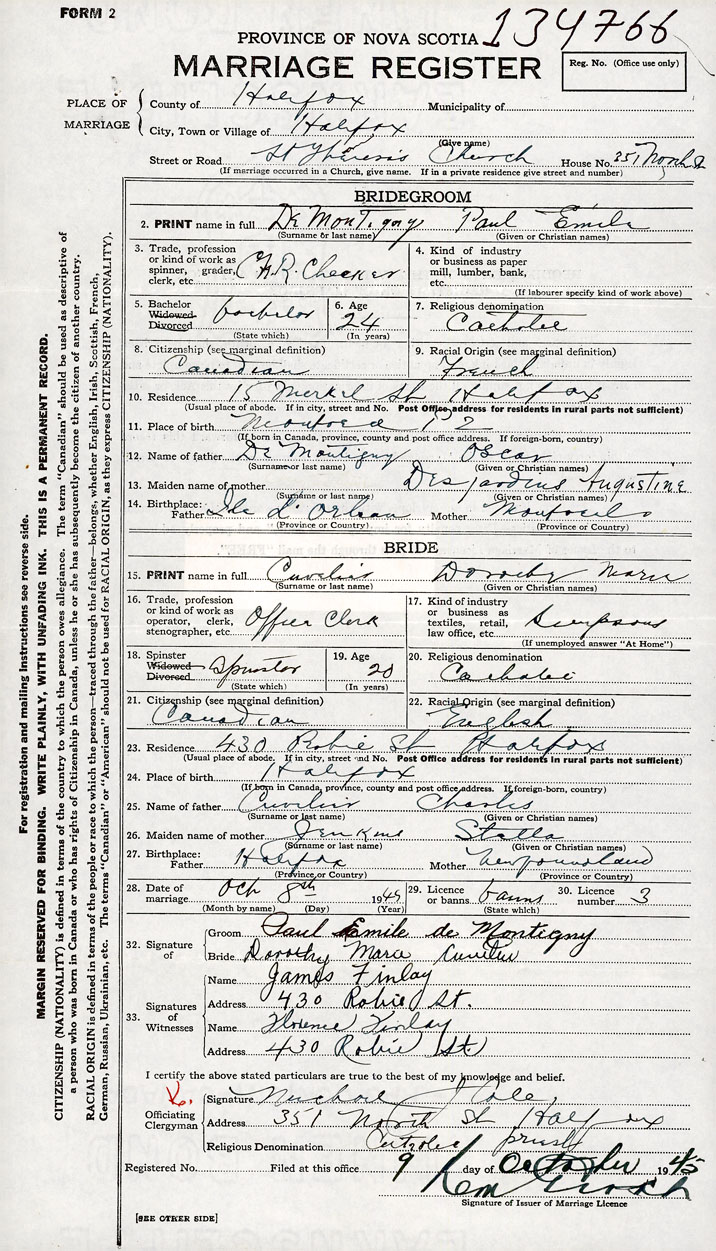 FORM 2
134766
PROVINCE OF NOVA SCOTIA
MARRIAGE REGISTER
Reg. No. (Office use only)
PLACE OF MARRIAGE
County of Halifax Municipality of
City, Town or Village of Halifax
(Give name)
Street or Road St Theresa's Church House No. 351 North St
(If marriage occurred in a Church, give name. If in a private residence give street and number)
BRIDEGROOM
2. PRINT name in full De Montigny Paul Emile
(Surname or last name) (Given or Christian names)
3. Trade, profession or kind of work as spinner, grader, clerk, etc. Checker
4. Kind of industry or business as paper mill, lumber, bank, etc.
(If labourer specify kind of work above)
5. Bachelor Widowed Divorced bachelor (State which)
6. Age 24 (In years)
7. Religious denomination Catholic
8. Citizenship (see marginal definition) Canadian
9. Racial Origin (see marginal definition) French
10. Residence 15 Merkel St Halifax
(Usual place of abode. If in city, street and No. Post Office address for residents in rural parts not sufficient)
11. Place of birth Montreal P2
(If born in Canada, province, county and post office address. If foreign-born, country)
12. Name of father De Montigny Oscar
(Surname or last name) (Given or Christian names)
13. Maiden name of mother Desjardins Augustine
(Surname or last name) (Given or Christian names)
14. Birthplace: Father Ile D'Orlean Mother Montreal
(Province or Country) (Province or Country)
BRIDE
15. PRINT name in full Cuvelier Dorothy Marie
(Surname or last name) (Given or Christian names)
16. Trade, profession or kind of work as operator, clerk, stenographer, etc. Office Clerk
17. Kind of industry or business as textiles, retail, law office, etc. Simpsons
(If unemployed answer "At Home")
18. Spinster Widowed Divorced Spinster (State which)
19. Age 20 (In years)
20. Religious denomination Catholic
21. Citizenship (see marginal definition) Canadian
22. Racial Origin (see marginal definition) English
23. Residence 430 Robie St Halifax
(Usual place of abode. If in city, street and No. Post Office address for residents in rural parts not sufficient)
24. Place of birth Halifax
(If born in Canada, province, county and post office address. If foreign-born, country)
25. Name of father Cuvelier Charles
(Surname or last name) (Given or Christian names)
26. Maiden name of mother Jenkins Stella
(Surname or last name) (Given or Christian names)
27. Birthplace: Father Halifax Mother Newfoundland
(Province or Country) (Province or Country)
28. Date of marriage Oct 8th 1945
(Month by name) (Day) (Year)
29. Licence or banns banns (State which)
30. Licence number 3
32. Signature of
Groom Paul Emile de Montigny
Bride Dorothy Marie Cuvelier
33. Signatures of Witnesses
Name James Finlay
Address 430 Robie St.
Name Florence Finlay
Address 430 Robie St
I certify the above stated particulars are true to the best of my knowledge and belief.
Officiating Clergyman
Signature Michael J Cole
Address 351 North St Halifax
Religious Denomination Catholic priest
Registered No. Filed at this office 9 day of October 1945
Signature of Issuer of Marriage Licence
[SEE OTHER SIDE]
For registration and mailing instructions see reverse side.
MARGIN RESERVED FOR BINDING. WRITE PLAINLY, WITH UNFADING INK. THIS IS A PERMANENT RECORD.
CITIZENSHIP (NATIONALITY) is defined in terms of the country to which the person owes allegiance. The term "Canadian" should be used as descriptive of
a person who was born in Canada or who has rights of Citizenship in Canada, unless he or she has subsequently become the citizen of another country.
RACIAL ORIGIN is defined in terms of the people or race to which the person—traced through the father—belongs, whether English, Irish, Scottish, French,
German, Russian, Ukrainian, etc. The terms "Canadian" or "American" should not be used for RACIAL ORIGIN, as they express CITIZENSHIP (NATIONALITY).